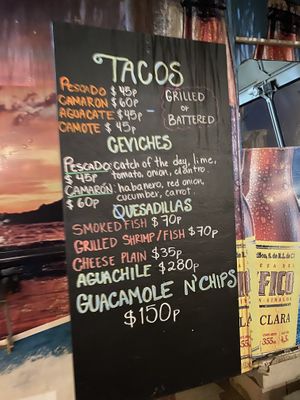 TACOS
PESCADO $45p
CAMARON $60p
AGUACATE $45p
CAMOTE $45p
GRILLED
or
BATTERED
CEVICHES
PESCADO: catch of the day, lime,
$45p tomato, onion, cilantro.
CAMARÓN: habanero, red onion,
$60p cucumber, carrot.
QUESADILLAS
SMOKED FISH $70p
GRILLED SHRIMP/FISH $70p
CHEESE PLAIN $35p
AGUACHILE $280p
GUACAMOLE N'CHIPS
$150p
FICO
CLARA
355